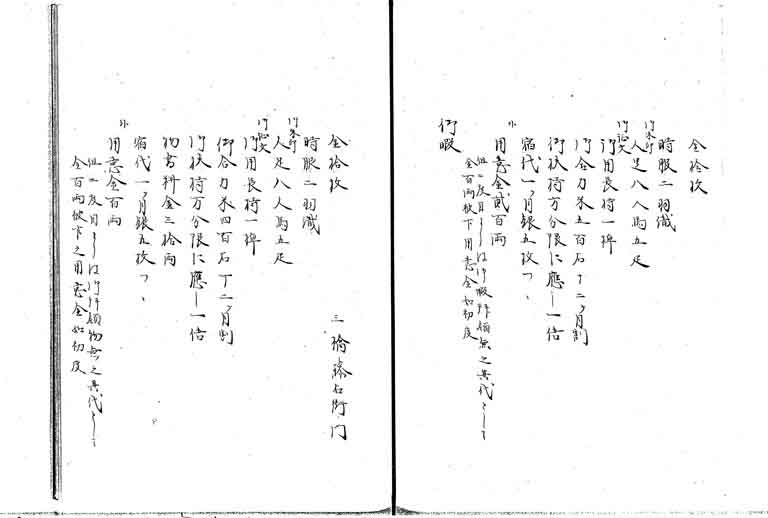 金拾枚
時服二羽織
御朱印
人足八人馬五疋
御証文
御用長持一棹
御合力米五百石十二ヶ月割
御扶持方分限に應し一倍
宿代一ヶ月銀五枚つゝ
外
用意金貳百両
但二度目よりは御暇拝領無之其代として
金百両被下用意金如初度
御暇
三橋藤右衛門
金拾枚
時服二羽織
御朱印
人足八人馬五疋
御証文
御用長持一棹
御合力米四百石十二ヶ月割
御扶持方分限に應し一倍
物書料金三拾両
宿代一ヶ月銀五枚つゝ
外
用意金百両
但二度目よりは御拝領物無之其代として
金百両被下之用意金如初度